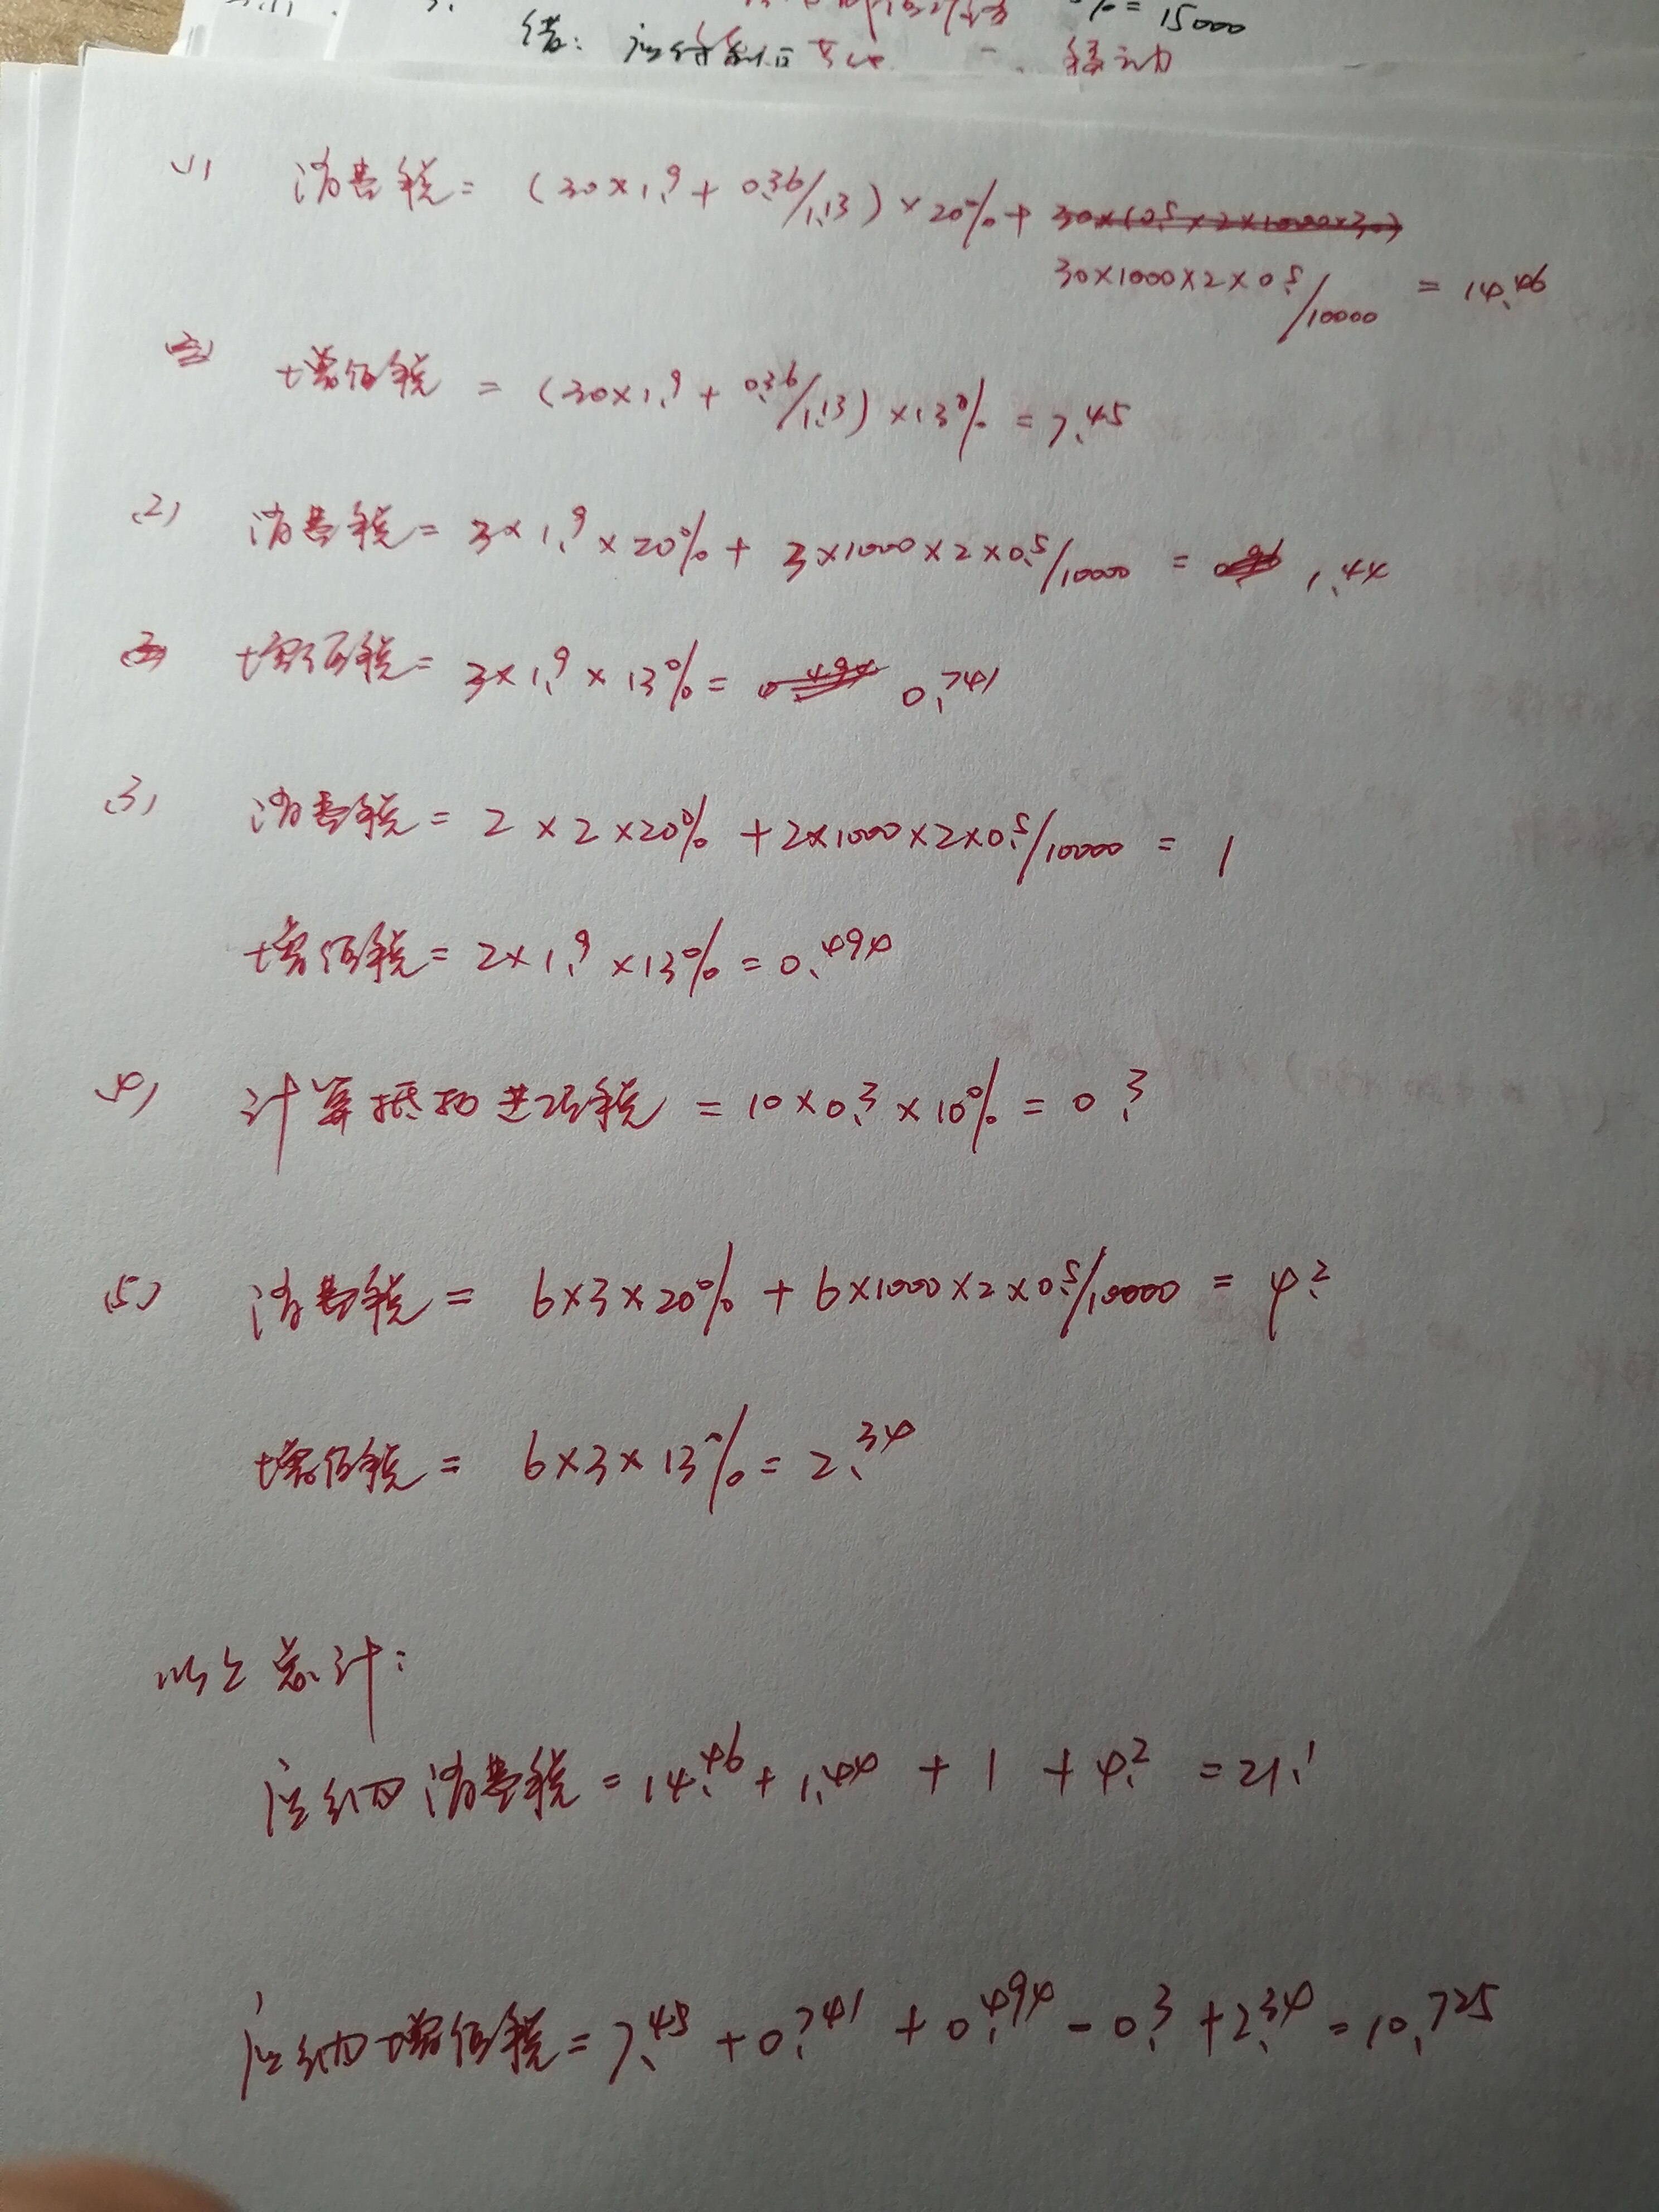 % = 15000
结:
(1) 消费税 = (30×1.9 + 0.36/1.13) × 20% +
30×1000×2×0.5/10000 = 14.46
增值税 = (30×1.9 + 0.36/1.13) ×13% = 7.45
(2) 消费税 = 3×1.9×20% + 3×1000×2×0.5/10000 = 1.44
增值税 = 3×1.9×13% = 0.741
(3) 消费税 = 2×2×20% + 2×1000×2×0.5/10000 = 1
增值税 = 2×1.9×13% = 0.494
(4) 计算抵扣进项税 = 10×0.3×10% = 0.3
(5) 消费税 = 6×3×20% + 6×1000×2×0.5/10000 = 4.2
增值税 = 6×3×13% = 2.34
以上总计:
应纳消费税 = 14.46 + 1.44 + 1 + 4.2 = 21.1
应纳增值税 = 7.45 + 0.741 + 0.494 - 0.3 + 2.34 = 10.725